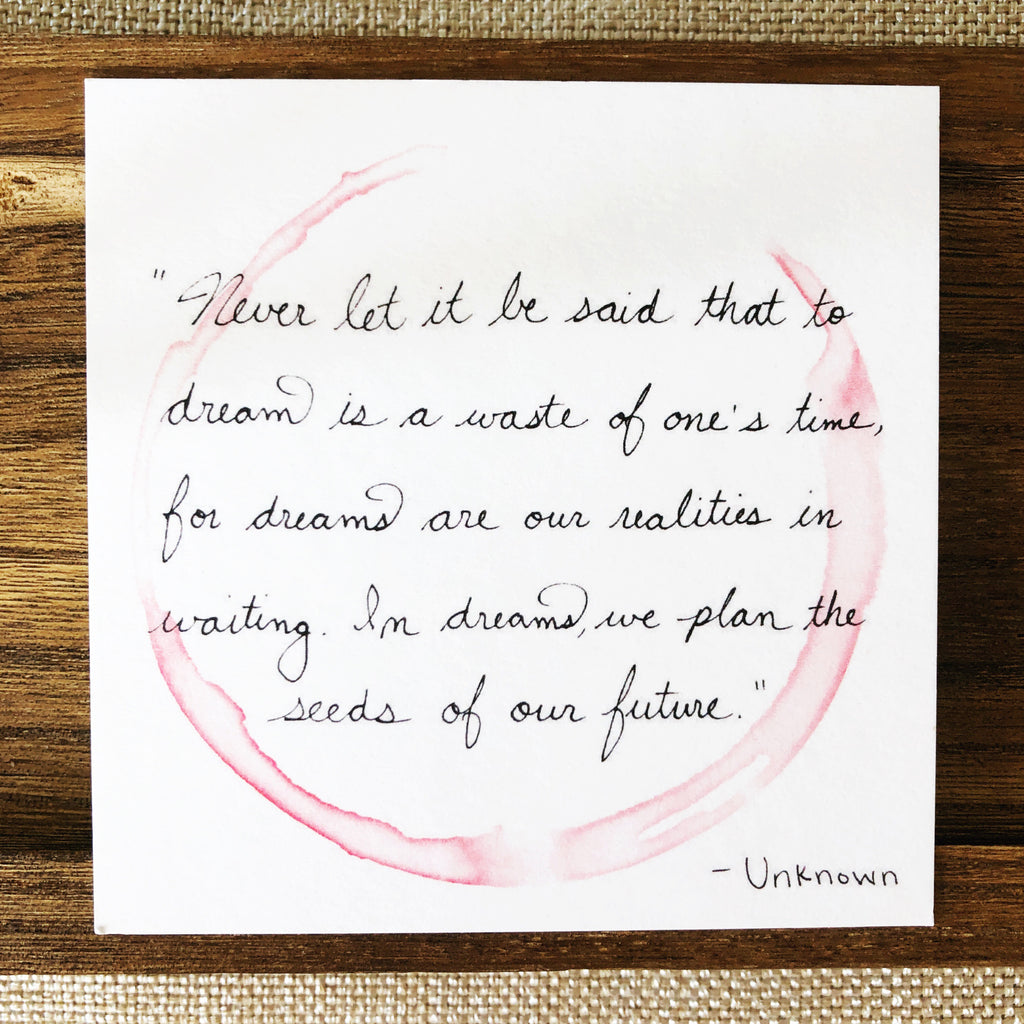 "Never let it be said that to
dream is a waste of one's time,
for dreams are our realities in
waiting. In dreams, we plan the
seeds of our future."
- Unknown